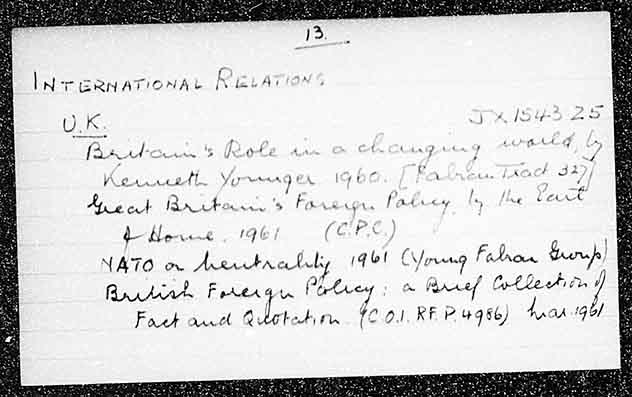 13.
INTERNATIONAL RELATIONS
U.K. JX 1543 Z5
Britain's Role in a changing world, by
Kenneth Younger 1960. [Fabian Tract 327]
Great Britain's Foreign Policy, by the Earl
of Home. 1961 (C.P.C.)
NATO or Neutrality 1961 (Young Fabian Group)
British Foreign Policy: a Brief Collection of
Fact and Quotation. (C.O.I. RF. P. 4986) Mar. 1961